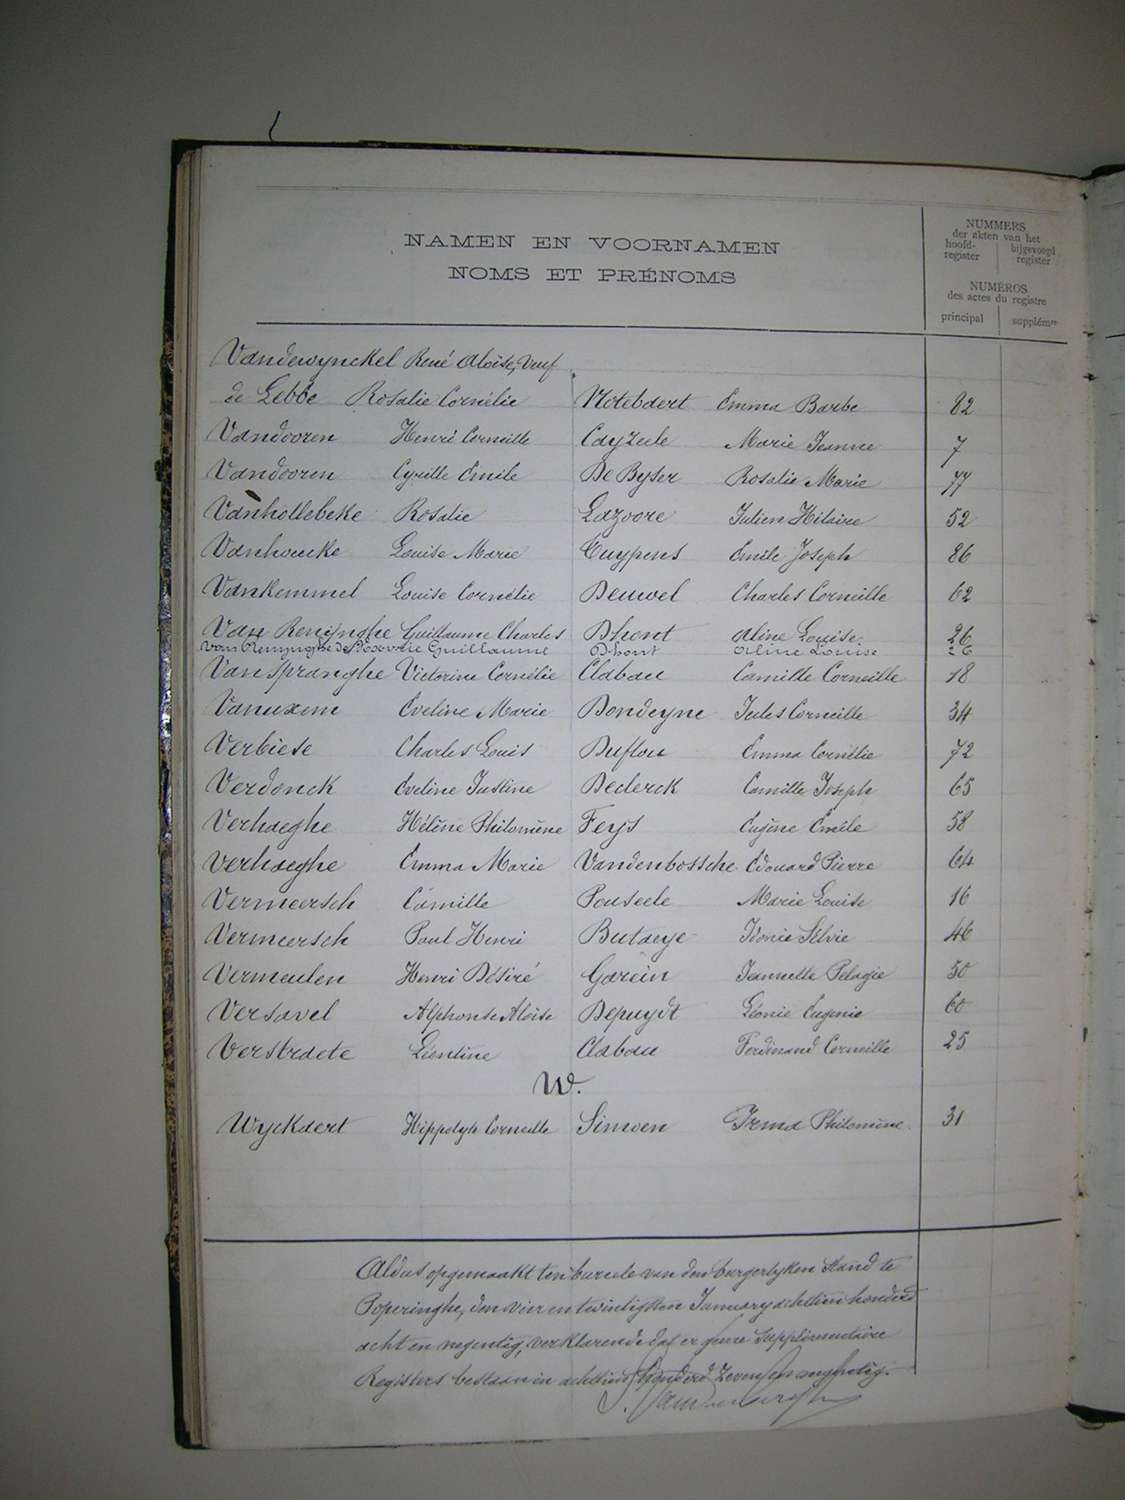 NAMEN EN VOORNAMEN
NOMS ET PRÉNOMS
NUMMERS
der akten van het
hoofd-register bijgevoegd register
NUMÉROS
des actes du registre
principal supplémre
Vandewynckel René Aloïse, veuf
de Lebbe Rosalie Cornélie Notebaert Emma Barbe 82
Vandooren Henri Corneille Cayzeele Marie Jeanne 7
Vandooren Cyrille Emile De Byser Rosalie Marie 77
Vanhollebeke Rosalie Lazoore Julien Hilaire 52
Vanhoucke Louise Marie Cuypens Emile Joseph 86
Vankemmel Louise Cornélie Deuwel Charles Corneille 62
Van Renynghe Guillaume Charles Dhont Aline Louise 26
Van Renynghe de Guillaume Dhont Aline Louise 26
Van Spranghe Victorine Cornélie Clabau Camille Corneille 18
Vanuxem Eveline Marie Bondeyne Jules Corneille 34
Verbiese Charles Louis Duflou Emma Cornélie 72
Verdonck Eveline Justine Declerck Camille Joseph 65
Verhaeghe Hélène Philomène Feys Eugène Emile 58
Verhaeghe Emma Marie Vandenbossche Edouard Pierre 64
Vermeersch Camille Pouseele Marie Louise 16
Vermeersch Paul Henri Butaeye Idonie Silvie 46
Vermeulen Henri Désiré Garein Jeannette Pelagie 50
Versavel Alphonse Aloïse Depuydt Léonie Eugenie 60
Verstraete Léontine Clabau Ferdinand Corneille 25
W.
Wyckaert Hippolyte Corneille Simoen Irma Philomène 31
Aldus opgemaakt ten bureele van den burgerlyken Stand te
Poperinghe, den vier en twintigsten January achttien honderd
acht en negentig, verklarende dat er geene Supplimentaire
Registers bestaan in achttien honderd zeven en negentig.